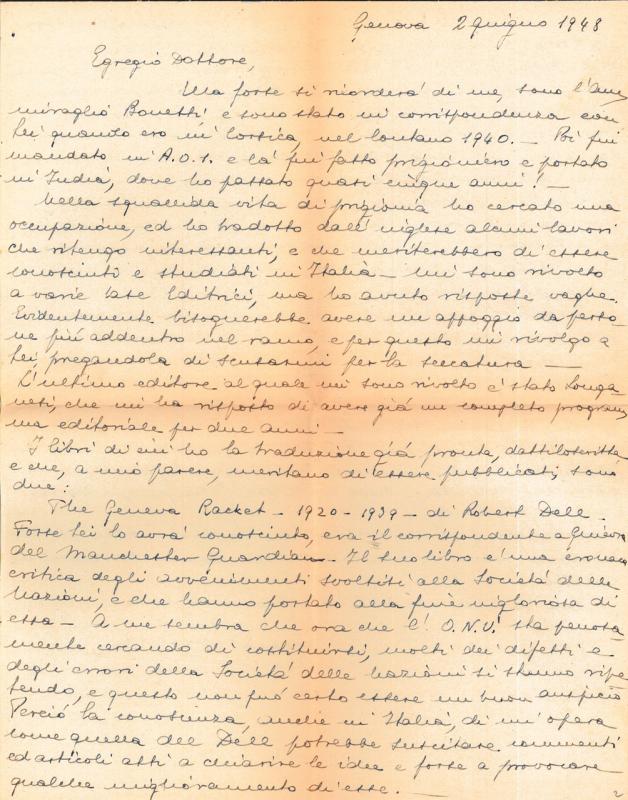 Genova 2 giugno 1948
Egregio Dottore,
Ella forse si ricorderà di me, sono l'Am
miraglio Bonetti, e sono stato in corrispondenza con
Lei quando ero in Corsica, nel lontano 1940. - Poi fui
mandato in A.O.I. e là fui fatto prigioniero e portato
in India, dove ho passato quasi cinque anni! -
Nella squallida vita di prigionia ho cercato una
occupazione, ed ho tradotto dall'inglese alcuni lavori
che ritengo interessanti, e che meriterebbero di essere
conosciuti e studiati in Italia - Mi sono rivolto
a varie Case Editrici, ma ho avuto risposte vaghe.
Evidentemente bisognerebbe avere un appoggio da perso
ne più addentro nel ramo, e per questo mi rivolgo a
Lei, pregandola di scusarmi per la seccatura -
L'ultimo editore al quale mi sono rivolto è stato Longa
nesi, che mi ha risposto di avere già un completo program
ma editoriale per due anni -
I libri di cui ho la traduzione già pronta, dattiloscritta
e che, a mio parere, meritano di essere pubblicati, sono
due:
The Geneva Racket - 1920 - 1939 - di Robert Dell -
Forse Lei lo avrà conosciuto, era il corrispondente a Ginevra
del Manchester Guardian - Il suo libro è una cronaca
critica degli avvenimenti svoltisi alla Società delle
Nazioni, e che hanno portato alla fine ingloriosa di
essa - A me sembra che ora che l'O.N.U. sta penosa
mente cercando di costituirsi, molti dei difetti e
degli errori della Società delle Nazioni si stanno ripe
tendo, e questo non può certo essere un buon auspicio
Perciò la conoscenza, anche in Italia, di un'opera
come quella del Dell potrebbe suscitare commenti
ed articoli atti a chiarire le idee e forse a provocare
qualche miglioramento di esse. -
2